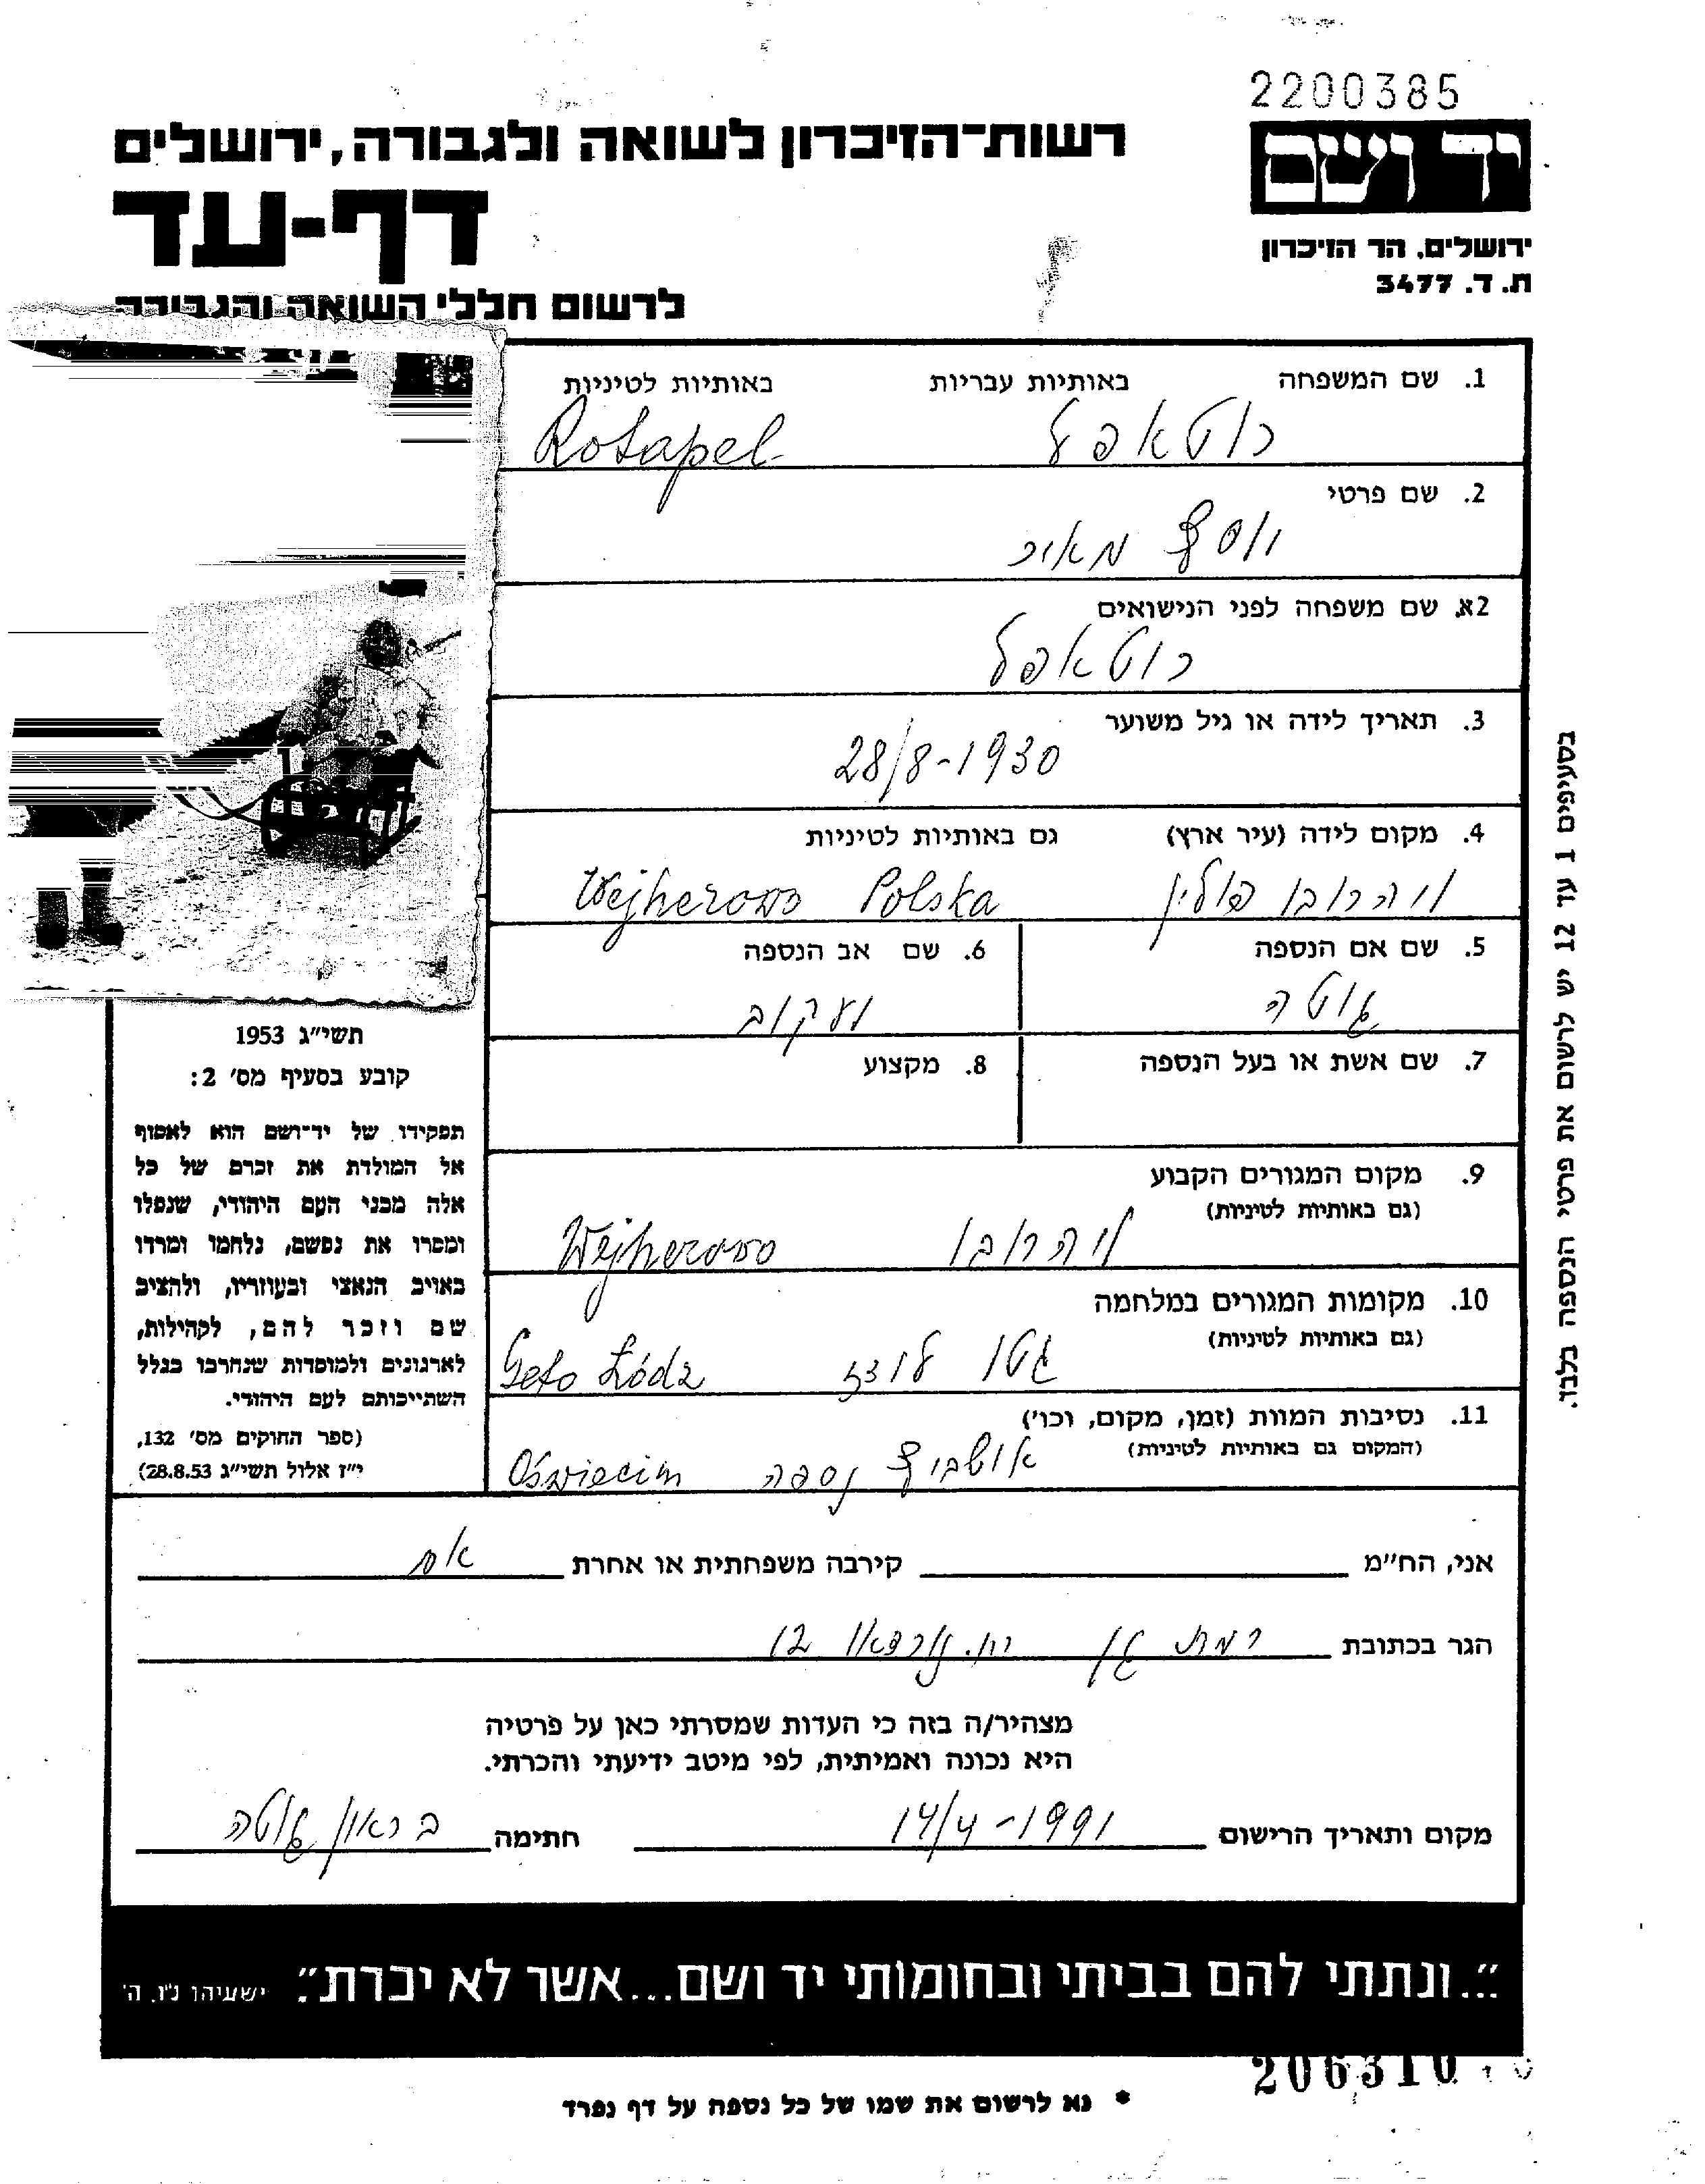 2200385
יד ושם
ירושלים, הר הזיכרון
ת. ד. 3477
רשות־הזיכרון לשואה ולגבורה, ירושלים
דף-עד
לרשום חללי השואה והגבורה
1. שם המשפחה באותיות עבריות באותיות לטיניות
רוטאפל Rotapel
2. שם פרטי
יוסף מאיר
2א. שם משפחה לפני הנישואים
רוטאפל
3. תאריך לידה או גיל משוער
28/8-1930
4. מקום לידה (עיר ארץ) גם באותיות לטיניות
ויהרובו פולין Wejherowo Polska
5. שם אם הנספה
גוטה
6. שם אב הנספה
יעקוב
7. שם אשת או בעל הנספה
8. מקצוע
9. מקום המגורים הקבוע
(גם באותיות לטיניות)
ויהרובו Wejherowo
10. מקומות המגורים במלחמה
(גם באותיות לטיניות)
גטו לודז Geto Łódz
11. נסיבות המוות (זמן, מקום, וכו')
(המקום גם באותיות לטיניות)
אושביץ נספה Oświecim
תשי״ג 1953
קובע בסעיף מס' 2:
תפקידו של יד־ושם הוא לאסוף
אל המולדת את זכרם של כל
אלה מבני העם היהודי, שנפלו
ומסרו את נפשם, נלחמו ומרדו
באויב הנאצי ובעוזריו, ולהציב
שם וזכר להם, לקהילות,
לארגונים ולמוסדות שנחרבו בגלל
השתייכותם לעם היהודי.
(ספר החוקים מס' 132,
י״ז אלול תשי״ג 28.8.53)
בסעיפים 1 עד 12 יש לרשום את פרטי הנספה בלבד.
אני, הח״מ קירבה משפחתית או אחרת אם
הגר בכתובת רמת גן רח. נורדאו 12
מצהיר/ה בזה כי העדות שמסרתי כאן על פרטיה
היא נכונה ואמיתית, לפי מיטב ידיעתי והכרתי.
מקום ותאריך הרישום 14/4-1991 חתימה בראון גוטה
״...ונתתי להם בביתי ובחומותי יד ושם...אשר לא יכרת״. ישעיהו נ״ו, ה'
206310
* נא לרשום את שמו של כל נספה על דף נפרד